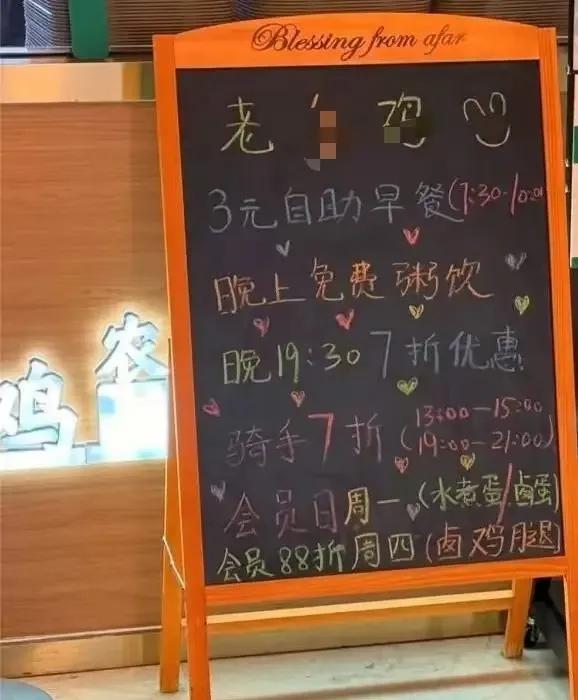 Blessing from afar
老 鸡
3元自助早餐(7:30-10:00
晚上免费粥饮
晚19:30 7折优惠
骑手7折(13:00—15:00
19:00—21:00)
会员日周一(水煮蛋/卤蛋)
会员88折周四(卤鸡腿)
农
鸡